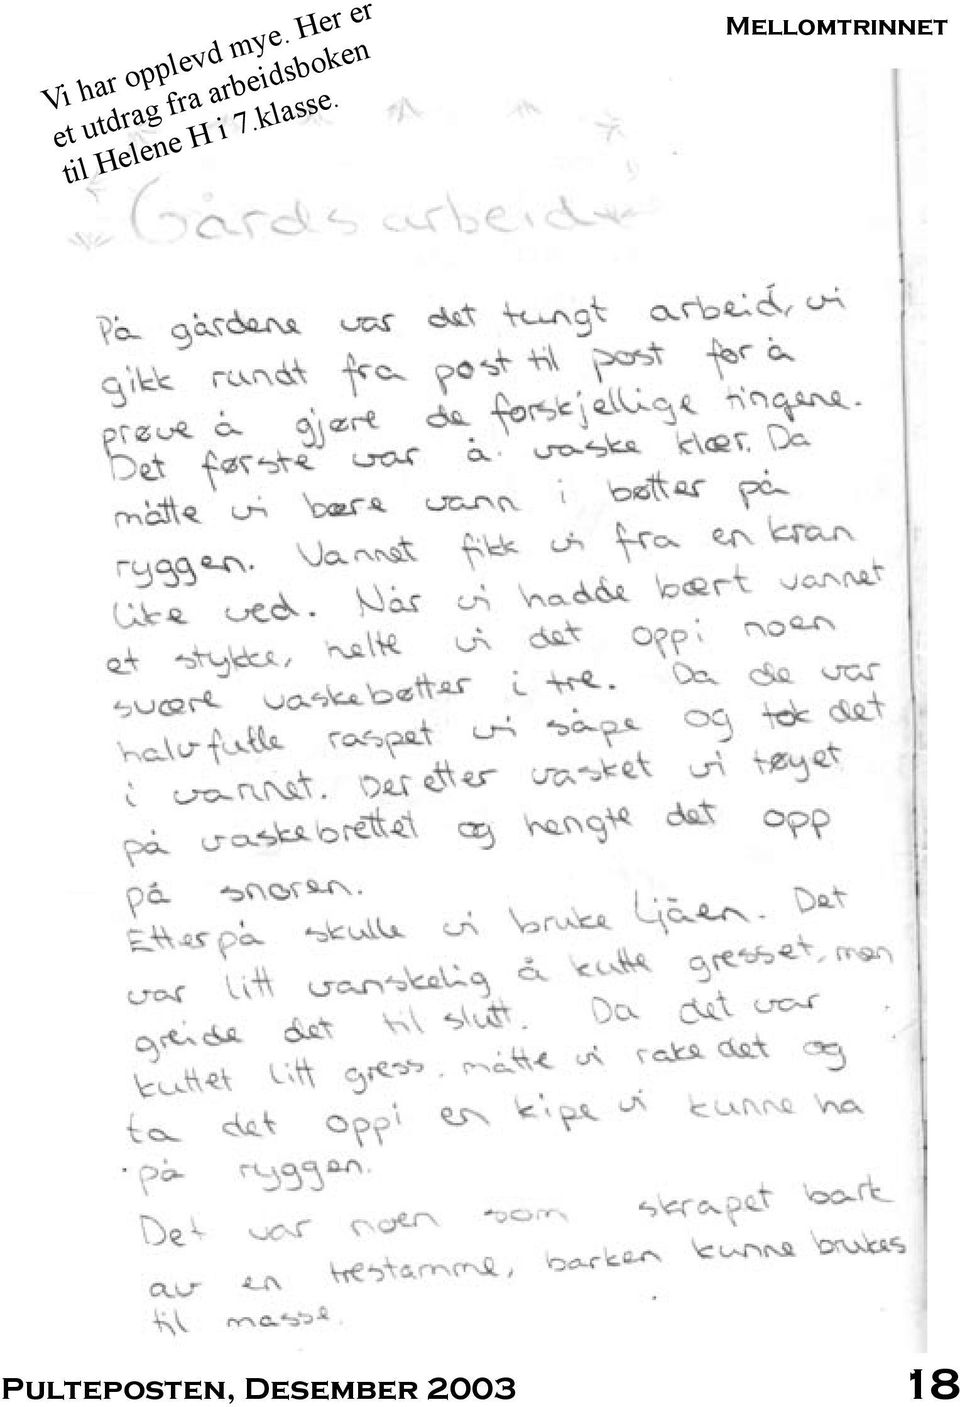 Vi har opplevd mye. Her er
et utdrag fra arbeidsboken
til Helene H i 7.klasse.
Mellomtrinnet
Gårdsarbeid
På gårdene var det tungt arbeid, vi
gikk rundt fra post til post for å
prøve å gjøre de forskjellige tingene.
Det første var å vaske klær. Da
måtte vi bære vann i bøtter på
ryggen. Vannet fikk vi fra en kran
like ved. Når vi hadde bært vannet
et stykke, helte vi det oppi noen
svære vaskebøtter i tre. Da de var
halvfulle raspet vi såpe og tok det
i vannet. Deretter vasket vi tøyet
på vaskebrettet og hengte det opp
på snoren.
Etterpå skulle vi bruke ljåen. Det
var litt vanskelig å kutte gresset, men
greide det til slutt. Da det var
kuttet litt gress, måtte vi rake det og
ta det oppi en kipe vi kunne ha
på ryggen.
Det var noen som skrapet bark
av en trestamme, barken kunne brukes
til masse.
Pulteposten, Desember 2003
18